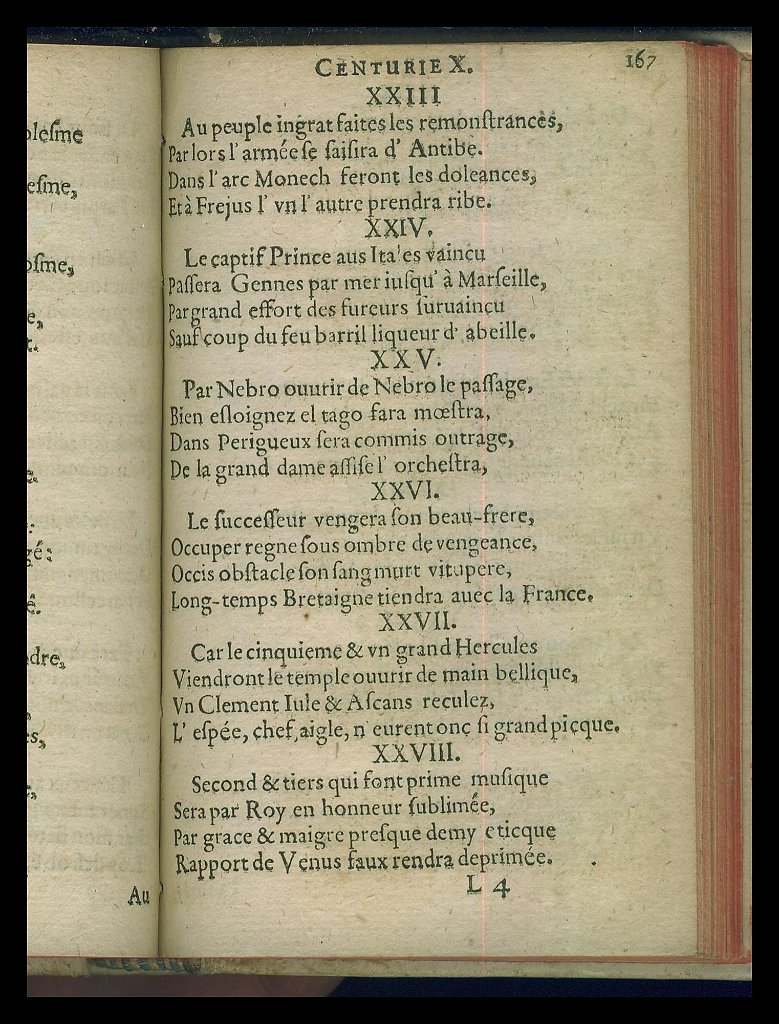 oleſme
eſme,
oſme,
e,
e.
:
gé:
é.
dre,
s,
Au
CENTURIE X. 167
XXIII
Au peuple ingrat faites les remonſtrances,
Par lors l'armée ſe ſaiſira d' Antibe.
Dans l'arc Monech feront les doleances,
Et à Frejus l' vn l' autre prendra ribe.
XXIV.
Le captif Prince aus Itales vaincu
Paſſera Gennes par mer iuſqu' à Marſeille,
Par grand effort des fureurs ſuruaincu
Sauf coup du feu barril liqueur d' abeille.
XXV.
Par Nebro ouurir de Nebro le paſſage,
Bien eſloignez el tago fara mœſtra,
Dans Perigueux ſera commis outrage,
De la grand dame aſſiſe l' orcheſtra,
XXVI.
Le ſucceſſeur vengera ſon beau-frere,
Occuper regne ſous ombre de vengeance,
Occis obſtacle ſon ſang murt vitupere,
Long-temps Bretaigne tiendra auec la France.
XXVII.
Car le cinquieme & vn grand Hercules
Viendront le temple ouurir de main bellique,
Vn Clement Iule & Aſcans reculez,
L' eſpée, chef, aigle, n'eurent onc ſi grand picque.
XXVIII.
Second & tiers qui font prime muſique
Sera par Roy en honneur ſublimée,
Par grace & maigre preſque demy eticque
Rapport de Venus faux rendra deprimée.
L 4